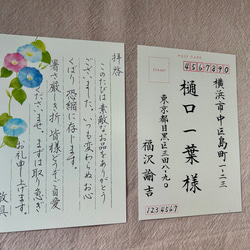 拝啓
このたびは素敵なお品をありがとう
ございました。いつも変わらぬお心
くばり恐縮に存じます。
暑さ厳しき折、皆様どうぞご自愛
くださいませ。まずは取り急ぎ
お礼申し上げます。
敬具
POST CARD
4567890
横浜市中区島町一-二三
樋口一葉様
東京都目黒区三四-八九〇
福沢諭吉
1234567